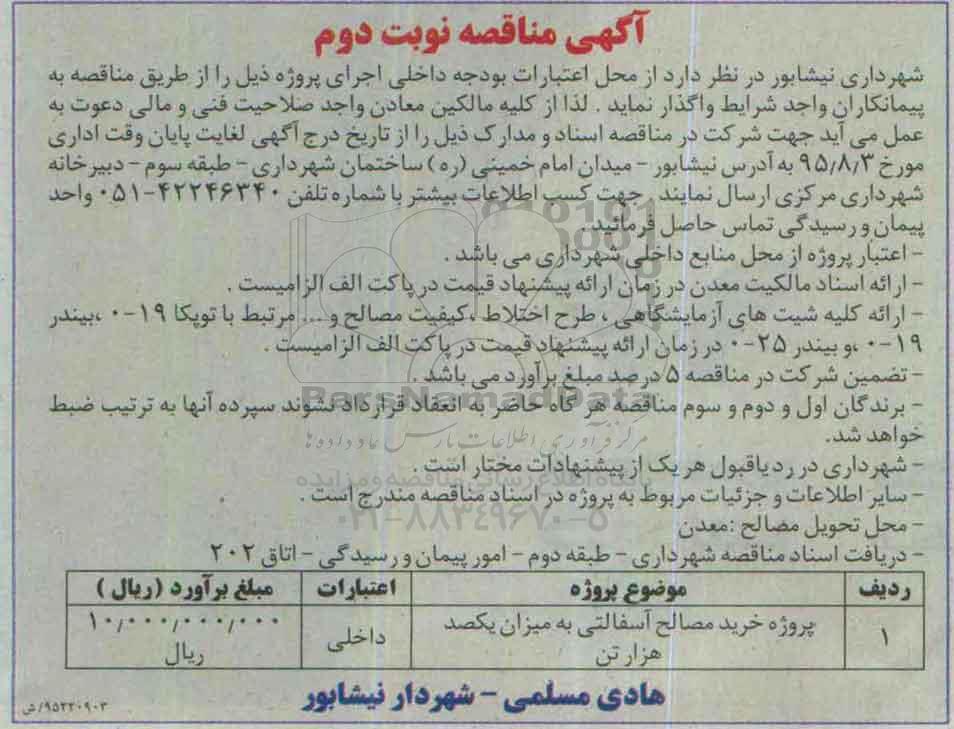 آگهی مناقصه نوبت دوم
شهرداری نیشابور در نظر دارد از محل اعتبارات بودجه داخلی اجرای پروژه ذیل را از طریق مناقصه به
پیمانکاران واجد شرایط واگذار نماید . لذا از کلیه مالکین معادن واجد صلاحیت فنی و مالی دعوت به
عمل می آید جهت شرکت در مناقصه اسناد و مدارک ذیل را از تاریخ درج آگهی لغایت پایان وقت اداری
مورخ ۹۵/۸/۳ به آدرس نیشابور – میدان امام خمینی (ره) ساختمان شهرداری – طبقه سوم – دبیرخانه
شهرداری مرکزی ارسال نمایند . جهت کسب اطلاعات بیشتر با شماره تلفن ۴۲۲۴۶۳۴۰-۰۵۱ واحد
پیمان و رسیدگی تماس حاصل فرمائید.
– اعتبار پروژه از محل منابع داخلی شهرداری می باشد .
– ارائه اسناد مالکیت معدن در زمان ارائه پیشنهاد قیمت در پاکت الف الزامیست .
– ارائه کلیه شیت های آزمایشگاهی ، طرح اختلاط ،کیفیت مصالح و... مرتبط با توپکا ۱۹-۰ ،بیندر
۱۹-۰ ،و بیندر ۲۵-۰ در زمان ارائه پیشنهاد قیمت در پاکت الف الزامیست .
– تضمین شرکت در مناقصه ۵ درصد مبلغ برآورد می باشد .
– برندگان اول و دوم و سوم مناقصه هر گاه حاضر به انعقاد قرارداد نشوند سپرده آنها به ترتیب ضبط
خواهد شد.
– شهرداری در رد یاقبول هر یک از پیشنهادات مختار است .
– سایر اطلاعات و جزئیات مربوط به پروژه در اسناد مناقصه مندرج است .
– محل تحویل مصالح :معدن
– دریافت اسناد مناقصه شهرداری – طبقه دوم – امور پیمان و رسیدگی – اتاق ۲۰۲
ردیف موضوع پروژه اعتبارات مبلغ برآورد (ریال )
۱ پروژه خرید مصالح آسفالتی به میزان یکصد هزار تن داخلی ۱۰/۰۰۰/۰۰۰/۰۰۰ ریال
هادی مسلمی – شهردار نیشابور
۹۵۲۲۰۹۰۳/ش
ParsNamadData
مرکز فرآوری اطلاعات پارس نماد داده ها
پایگاه اطلاع رسانی مناقصه و مزایده
۰۲۱-۸۸۳۴۹۶۷۰-۵